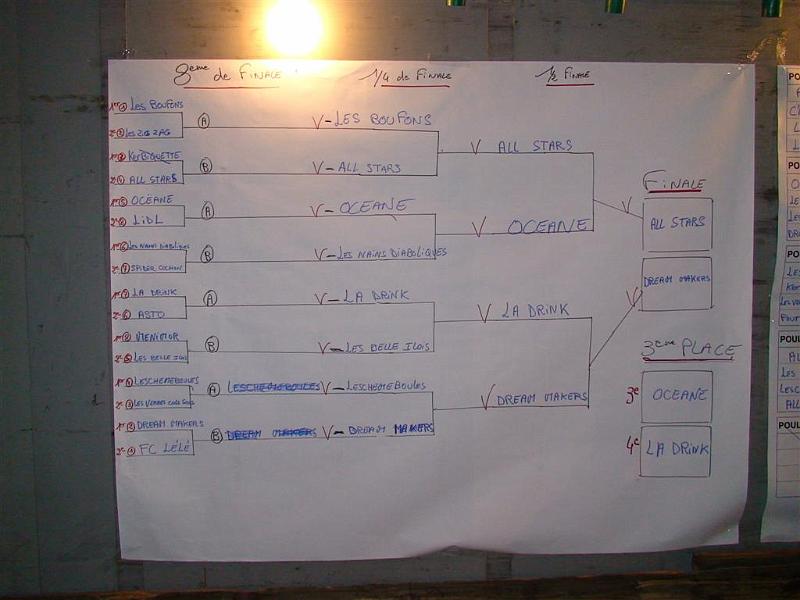 8eme de Finale
1/4 de Finale
1/2 Finale
1er LES BOUFONS
2e LES ZIG ZAG
A
V-LES BOUFONS
1er KERBIQUETTE
2e ALL STARS
B
V-ALL STARS
V ALL STARS
1er OCEANE
2e LiDL
A
V-OCEANE
1er LES NAINS DIABOLIQUES
2e SPIDER COCHON
B
V-LES NAINS DIABOLIQUES
V OCEANE
1er LA DRiNK
2e ASTO
A
V-LA DRiNK
2e LES BELLE ILOIS
B
V-LES BELLE ILOIS
V LA DRiNK
1er LESCHEMEBOULES
A
LESCHEMEBOULES
V-LESCHEMEBOULES
1er DREAM MAKERS
2e FC LÉLÉ
B
DREAM MAKERS
V-DREAM MAKERS
V DREAM MAKERS
FiNALE
V
ALL STARS
V
DREAM MAKERS
3eme PLACE
3e OCEANE
4e LA DRiNK
POUL
POUL
POUL
POUL
POUL